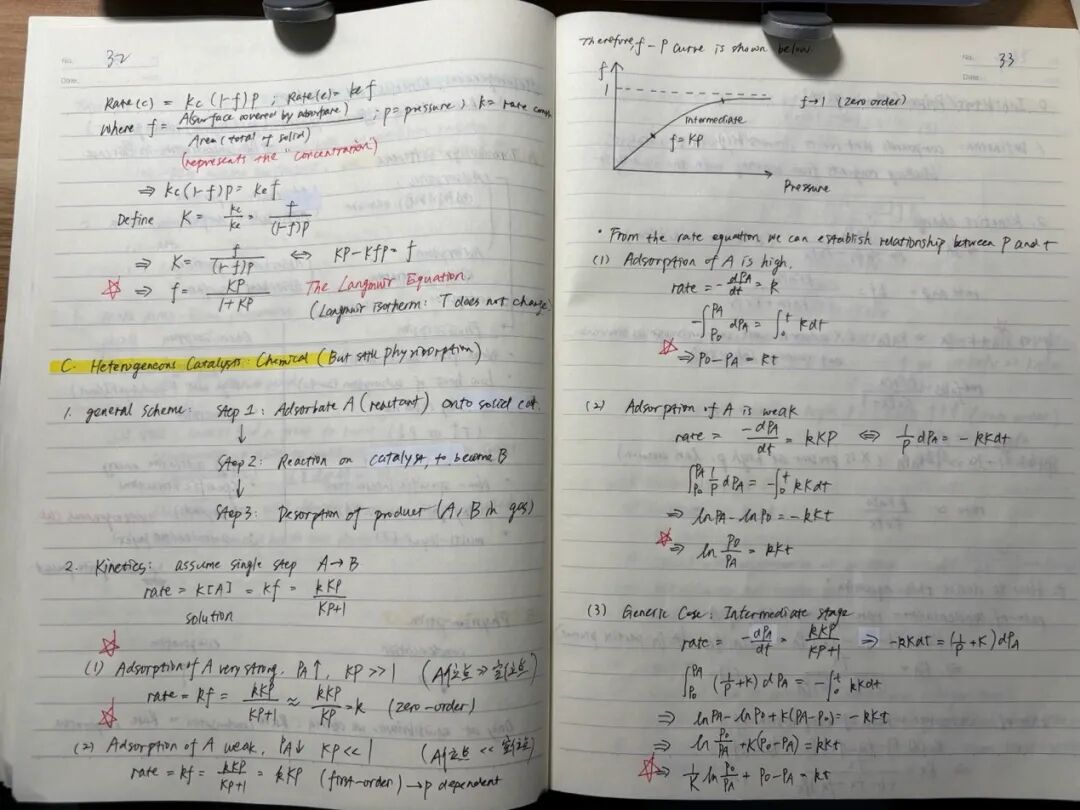 No. 32
Date.
Rate(c) = kc (1-f) P ; Rate(e) = ke f
Where f = A(surface covered by adsorbate) / Area (total of solid) ; P = pressure ; k = rate const
(represents the "concentration")
⇒ kc(1-f)P = ke f
Define K = kc/ke = f/((1-f)P)
⇒ K = f/((1-f)P) ⇔ KP - KfP = f
☆ ⇒ f = KP/(1+KP) The Langmuir Equation.
(Langmuir isotherm: T does not change)
C. Heterogeneous Catalysts: Chemical (But still physisorption)
1. general scheme: Step 1: Adsorbate A (reactant) onto solid cat.
↓
Step 2: Reaction on catalyst, to become B
↓
Step 3: Desorption of product (A, B in gas)
2. Kinetics: assume single step A → B
rate = k[A] = kf = kKP/(KP+1)
solution
☆
(1) Adsorption of A very strong, PA↑, KP >> 1
rate = kf = kKP/(KP+1) ≈ kKP/KP = k (zero-order)
☆
(2) Adsorption of A weak, PA↓ KP << 1
rate = kf = kKP/(KP+1) = kKP (first-order) → P dependent
No. 33
Date.
Therefore, f-P curve is shown below.
f
1
f→1 (zero order)
Intermediate
f=KP
Pressure
• From the rate equation we can establish relationship between P and t
(1) Adsorption of A is high.
rate = -dPA/dt = k
-∫_P0^PA dPA = ∫_0^t k dt
☆ ⇒ P0 - PA = kt
(2) Adsorption of A is weak
rate = -dPA/dt = kKP ⇔ 1/P dPA = -kKdt
∫_P0^PA 1/P dPA = -∫_0^t kKdt
⇒ lnPA - lnP0 = -kKt
☆ ⇒ ln P0/PA = kKt
(3) Generic Case: Intermediate stage
rate = -dPA/dt = kKP/(KP+1) ⇒ -kKdt = (1/P + K) dPA
∫_P0^PA (1/P + K) dPA = -∫_0^t kKdt
⇒ lnPA - lnP0 + K(PA-P0) = -kKt
⇒ ln P0/PA + K(P0-PA) = kKt
☆ ⇒ 1/K ln P0/PA + P0 - PA = kt